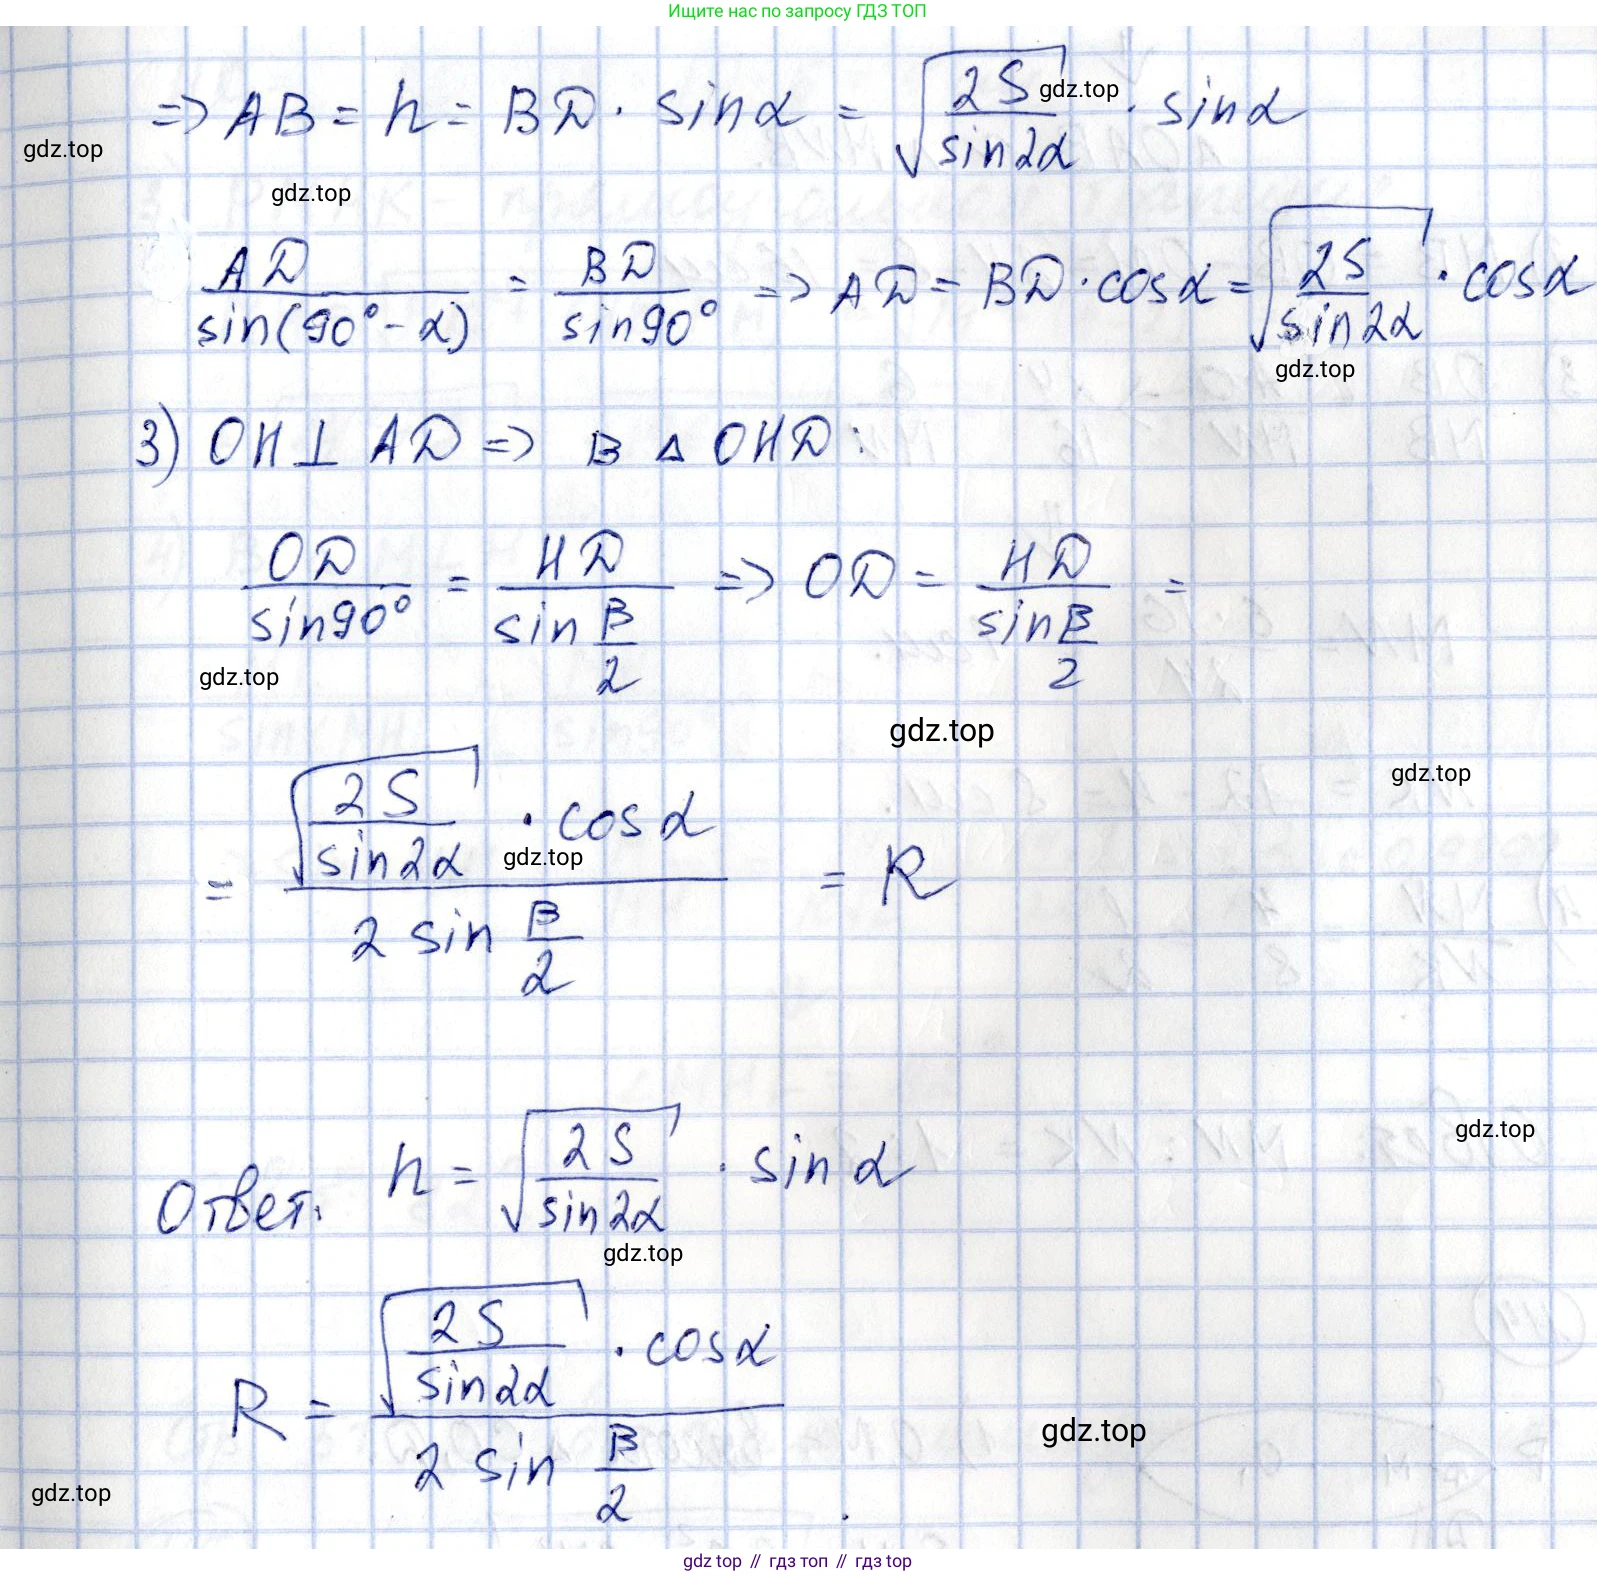 Ищите нас по запросу ГДЗ ТОП
=> AB = h = BD · sinα = √(2S/sin2α) · sinα
gdz.top
gdz.top
gdz.top
AD/sin(90°-α) = BD/sin90° => AD = BD · cosα = √(2S/sin2α) · cosα
gdz.top
3) OH⊥AD => в △ OHD:
OD/sin90° = HD/sin β/2 => OD = HD/sin β/2 =
gdz.top
gdz.top
gdz.top
= √(2S/sin2α) · cosα / 2 sin β/2 = R
gdz.top
gdz.top
Ответ: h = √(2S/sin2α) · sinα
gdz.top
R = √(2S/sin2α) · cosα / 2 sin β/2 .
gdz.top
gdz.top
gdz top // гдз топ // gdz top